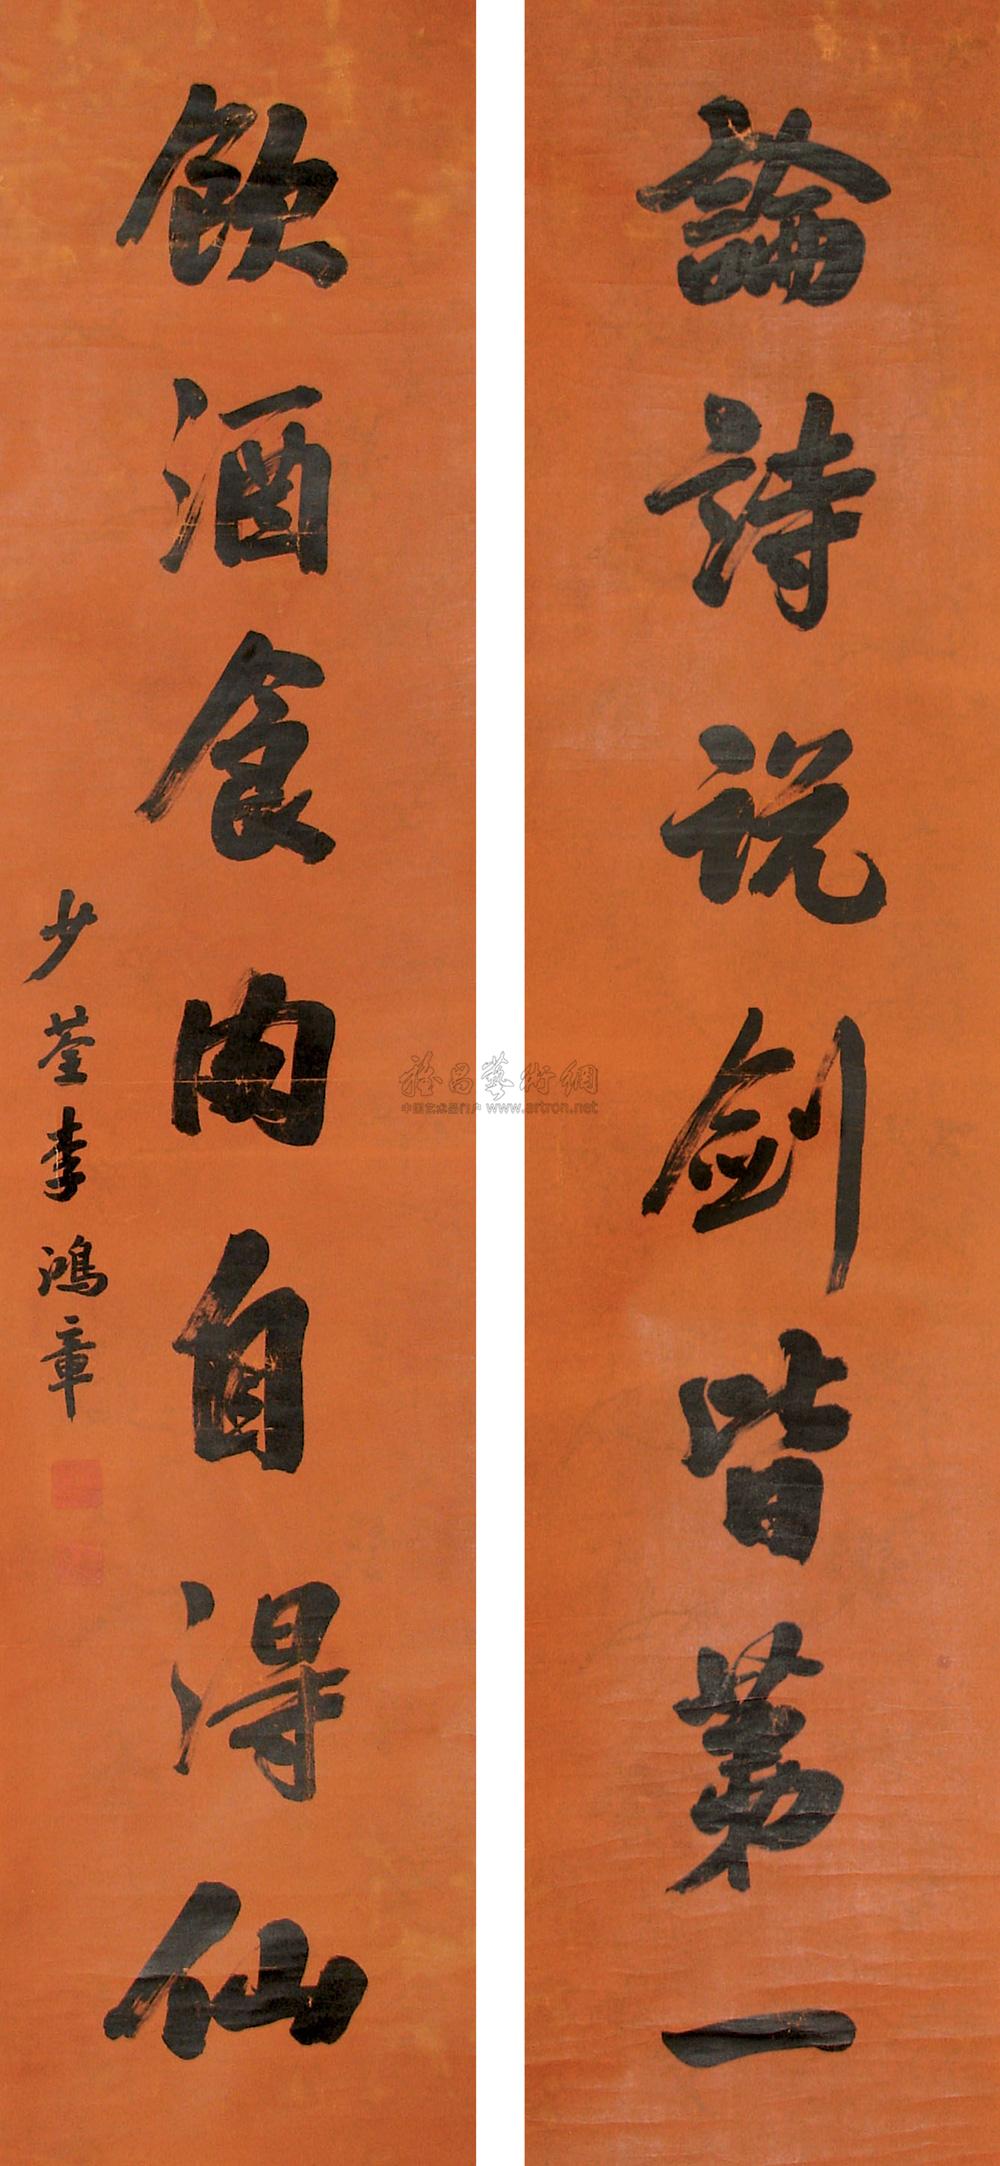 論詩説劍皆第一
飲酒食肉自得仙
少荃李鴻章
雅昌藝術網
中国艺术品门户 www.artron.net